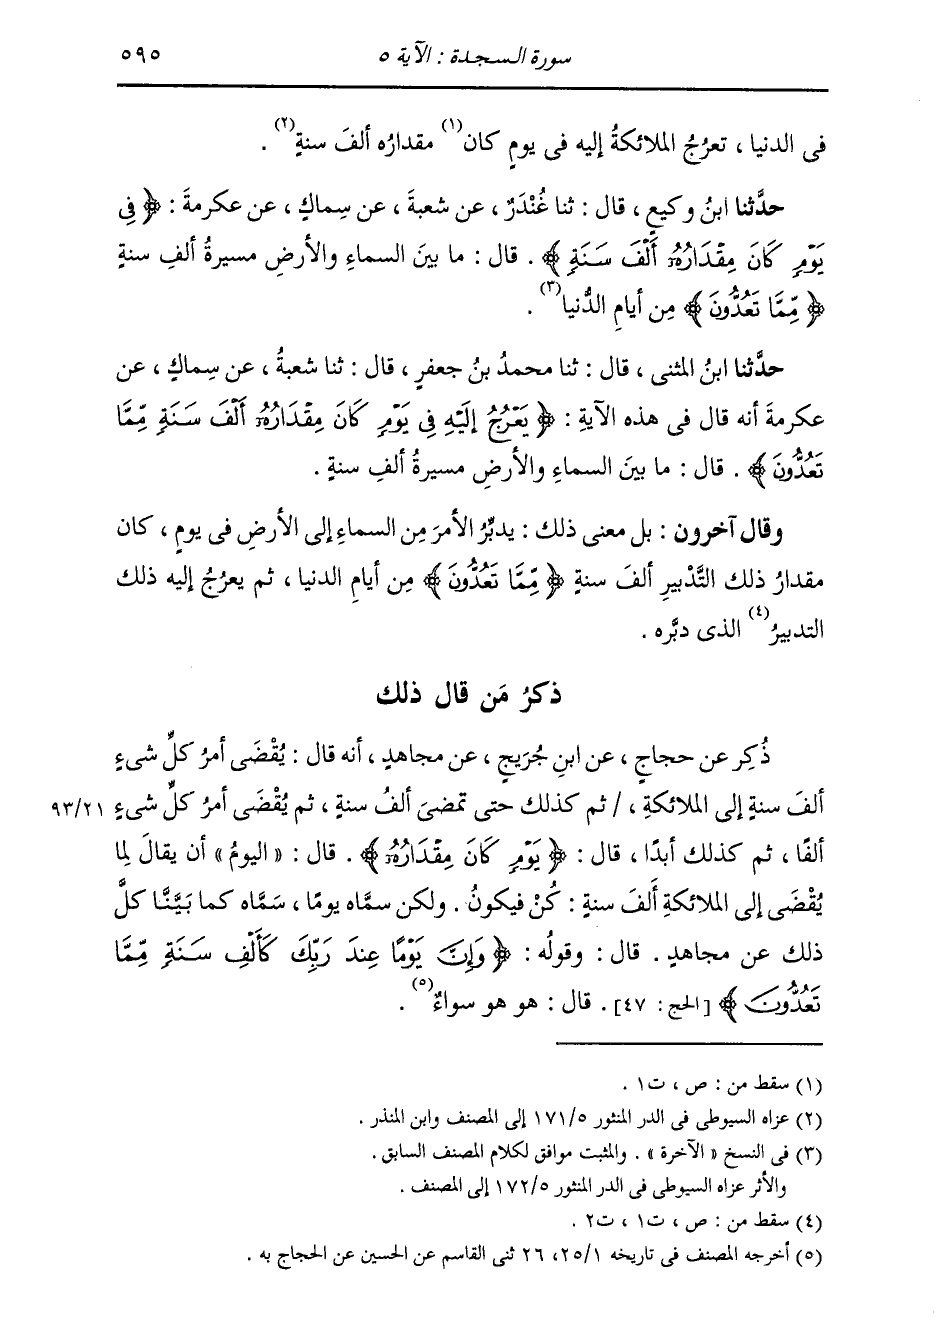 سورة السجدة : الآية ٥ ٥٩٥
فى الدنيا ، تعرُجُ الملائكةُ إليه فى يومٍ كان(١) مقدارُه ألفَ سنةٍ(٢) .
حدَّثنا ابنُ وكيعٍ ، قال : ثنا غُنْدَرٌ ، عن شعبةَ ، عن سِماكٍ ، عن عكرمةَ : ﴿ فِي
يَوْمٍ كَانَ مِقْدَارُهُۥٓ أَلْفَ سَنَةٍ ﴾ . قال : ما بينَ السماءِ والأرضِ مسيرةُ ألفِ سنةٍ
﴿ مِّمَّا تَعُدُّونَ ﴾ مِن أيامِ الدُّنيا(٣) .
حدَّثنا ابنُ المثنى ، قال : ثنا محمدُ بنُ جعفرٍ ، قال : ثنا شعبةُ ، عن سِماكٍ ، عن
عكرمةَ أنه قال فى هذه الآيةِ : ﴿ يَعْرُجُ إِلَيْهِ فِي يَوْمٍ كَانَ مِقْدَارُهُۥٓ أَلْفَ سَنَةٍ مِّمَّا
تَعُدُّونَ ﴾ . قال : ما بينَ السماءِ والأرضِ مسيرةُ ألفِ سنةٍ .
وقال آخرون : بل معنى ذلك : يدبِّرُ الأمرَ مِن السماءِ إلى الأرضِ فى يومٍ ، كان
مقدارُ ذلك التَّدْبيرِ ألفَ سنةٍ ﴿ مِّمَّا تَعُدُّونَ ﴾ مِن أيامِ الدنيا ، ثم يعرُجُ إليه ذلك
التدبيرُ(٤) الذى دبَّره .
ذكرُ مَن قال ذلك
ذُكِر عن حجاجٍ ، عن ابنِ جُرَيجٍ ، عن مجاهدٍ ، أنه قال : يُقْضَى أمرُ كلِّ شىءٍ
ألفَ سنةٍ إلى الملائكةِ ، / ثم كذلك حتى تمضىَ ألفُ سنةٍ ، ثم يُقْضَى أمرُ كلِّ شىءٍ ٩٣/٢١
ألفًا ، ثم كذلك أبدًا ، قال : ﴿ يَوْمٍ كَانَ مِقْدَارُهُۥٓ ﴾ . قال : « اليومُ » أن يقالَ لِما
يُقْضَى إلى الملائكةِ ألفَ سنةٍ : كُنْ فيكونُ . ولكن سمَّاه يومًا ، سَمَّاه كما بيَّنَّا كلَّ
ذلك عن مجاهدٍ . قال : وقولُه : ﴿ وَإِنَّ يَوْمًا عِندَ رَبِّكَ كَأَلْفِ سَنَةٍ مِّمَّا
تَعُدُّونَ ﴾ [الحج : ٤٧] . قال : هو هو سواءٌ(٥) .
(١) سقط من : ص ، ت١ .
(٢) عزاه السيوطى فى الدر المنثور ١٧١/٥ إلى المصنف وابن المنذر .
(٣) فى النسخ « الآخرة » . والمثبت موافق لكلام المصنف السابق .
والأثر عزاه السيوطى فى الدر المنثور ١٧٢/٥ إلى المصنف .
(٤) سقط من : ص ، ت١ ، ت٢ .
(٥) أخرجه المصنف فى تاريخه ٢٥/١، ٢٦ ثنى القاسم عن الحسين عن الحجاج به .